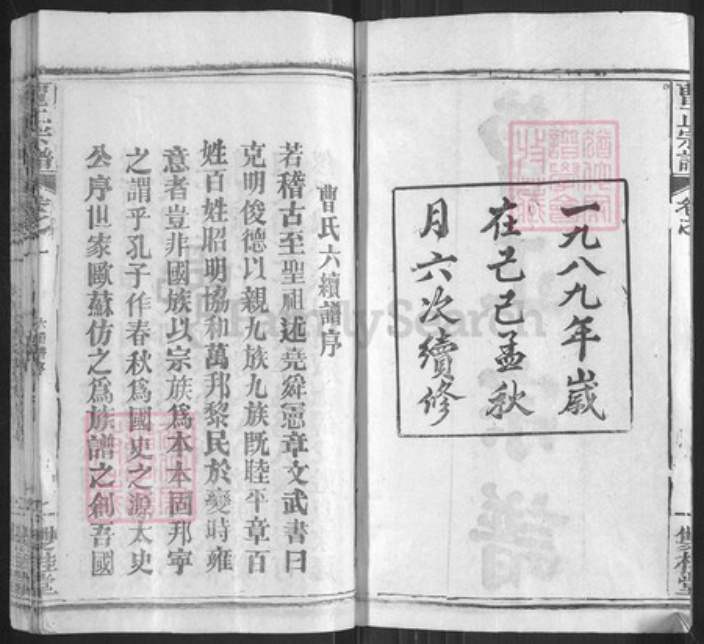 一九八九年歲
在己巳孟秋
月六次續修
曹氏六續譜序
若稽古至聖祖述堯舜憲章文武書曰
克明俊德以親九族九族既睦平章百
姓百姓昭明協和萬邦黎民於變時雍
意者豈非國族以宗族為本本固邦寧
之謂乎孔子作春秋為國史之源太史
公序世家歐蘇仿之為族譜之創吾國
曹氏宗譜
卷之一
六續譜序
一
雙桂堂
曹氏宗譜
卷之
雙桂堂
FamilySearch